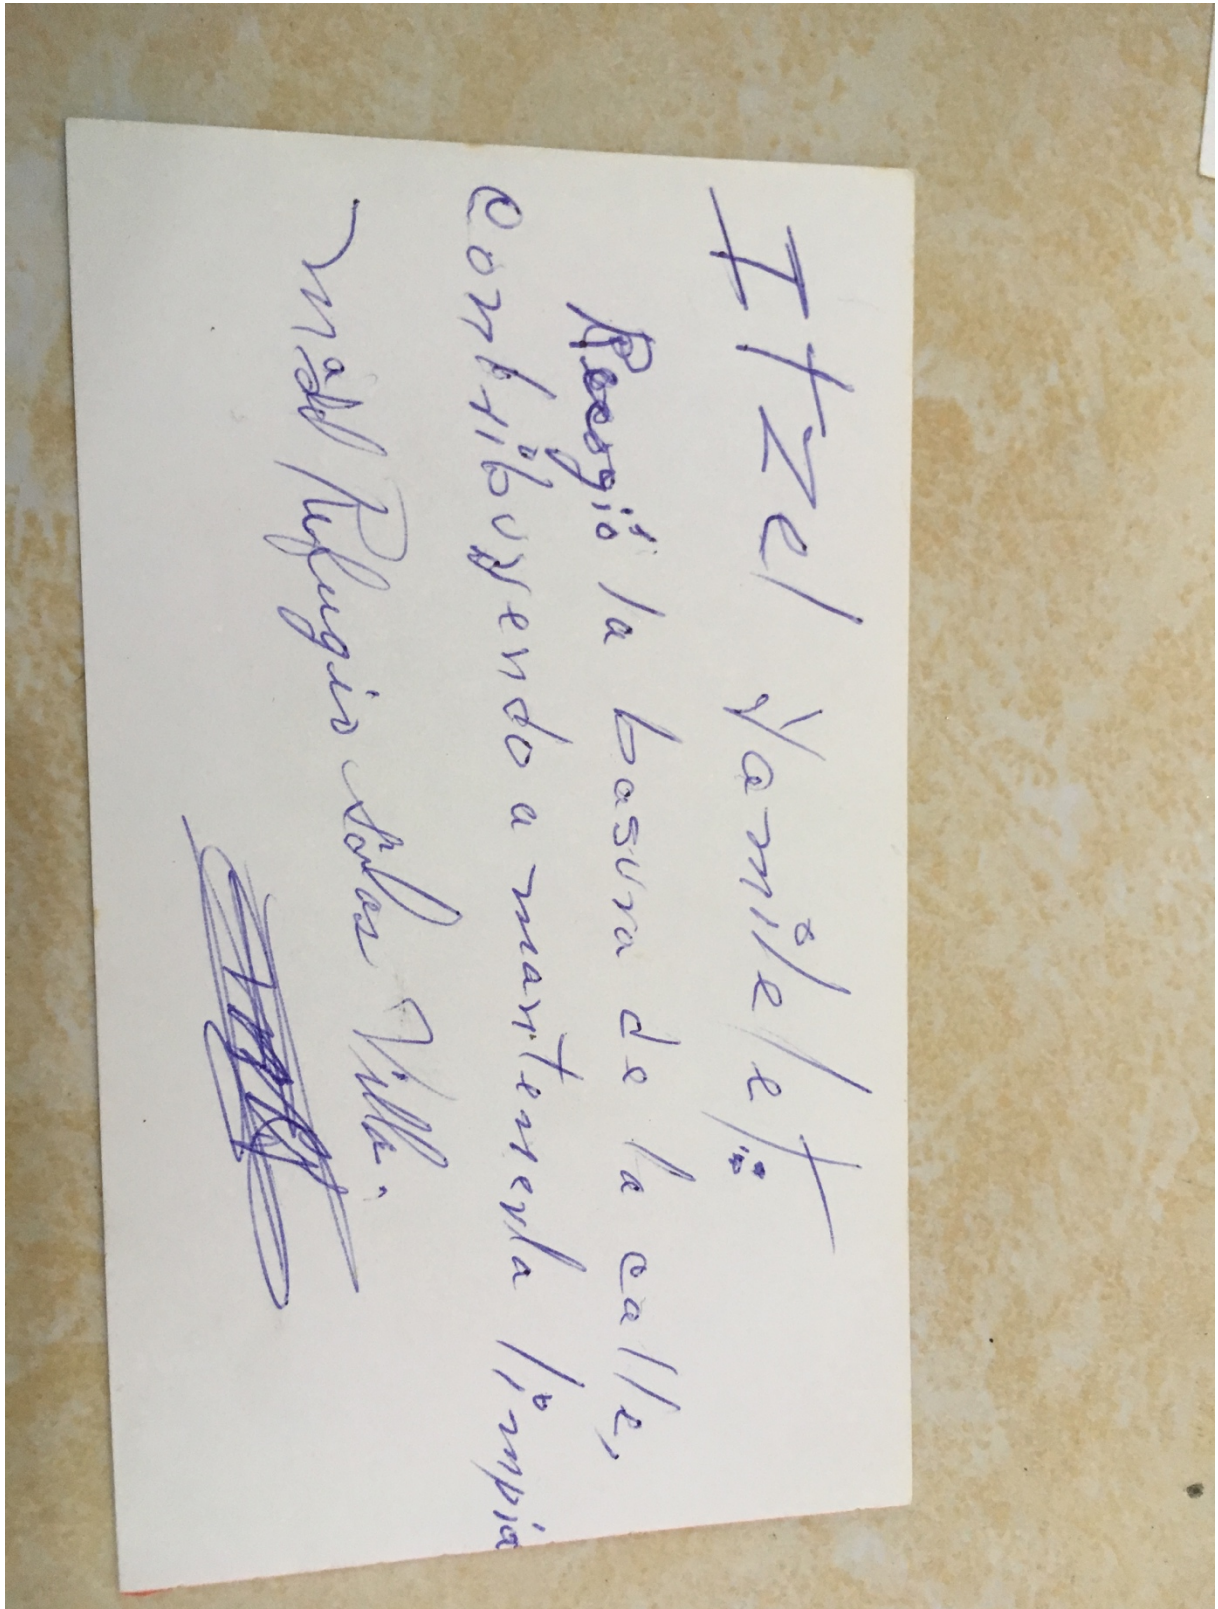 Itzel Yamilet:
Recogió la basura de la calle,
contribuyendo a mantenerla limpia
Ma del Refugio Salas Villa.